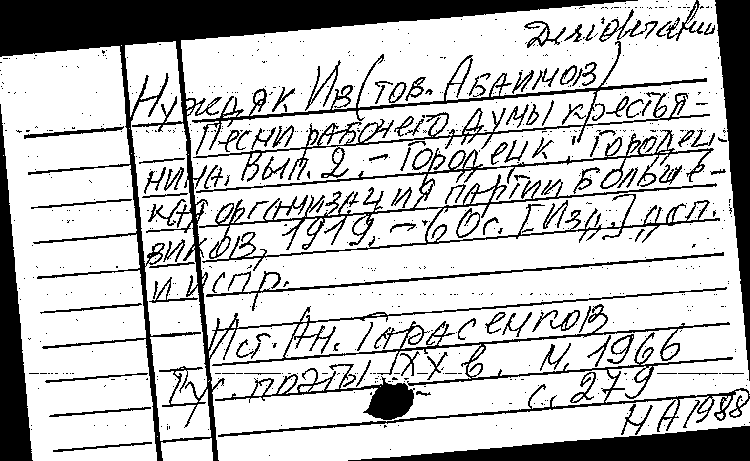 Нуждяк Ив (тов. Абаимов)
Песни рабочего, думы крестья-
нина. Вып. 2. - Городец: Городец-
кая организация партии больше-
виков, 1919. - 60с. [Изд.] доп.
и испр.
Ист. Ан. Тарасенков
Рус. поэты XX в. М. 1966
с. 279
НА1988